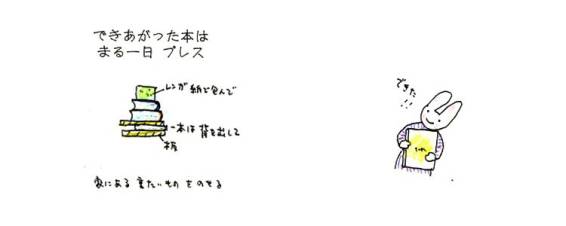 できあがった本は
まる一日 プレス
レンガ 紙で包んで
本は 背を出して
板
家にある 重たいもの をのせる
できた!!